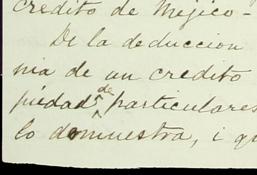 credito de Mejico -
De la deduccion
nia de un credito
piedad de particulares
lo demuestra, i qu